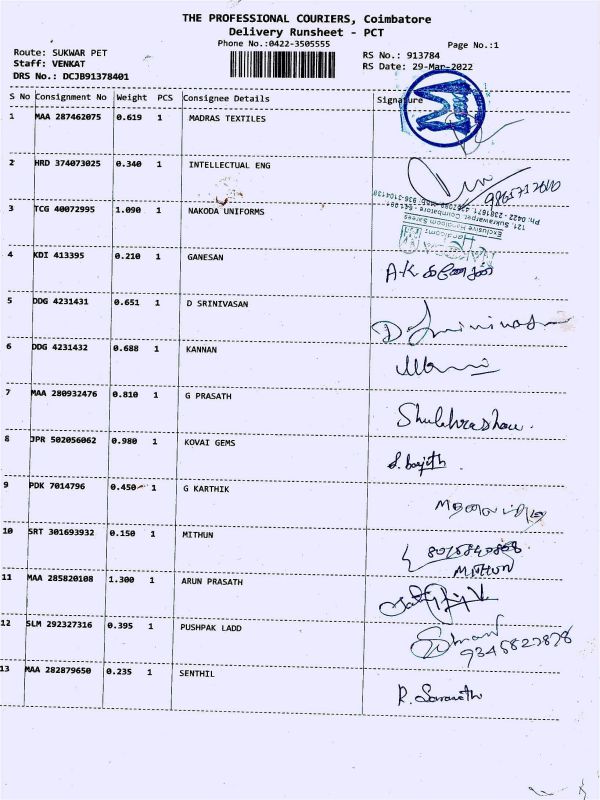 THE PROFESSIONAL COURIERS, Coimbatore
Delivery Runsheet - PCT
Phone No.:0422-3505555
Page No.:1
Route: SUKWAR PET
Staff: VENKAT
DRS No.: DCJB91378401
RS No.: 913784
RS Date: 29-Mar-2022
S No Consignment No Weight PCS Consignee Details Signature
1 MAA 287462075 0.619 1 MADRAS TEXTILES
2 HRD 374073025 0.340 1 INTELLECTUAL ENG
3 TCG 40072995 1.090 1 NAKODA UNIFORMS
Exclusive Handloom Sarees
121, Sukrawarpet, Coimbatore - 641 001.
4 KDI 413395 0.210 1 GANESAN A.K கணேசன்
5 DDG 4231431 0.651 1 D SRINIVASAN D. Srinivasan
6 DDG 4231432 0.688 1 KANNAN
7 MAA 280932476 0.810 1 G PRASATH
8 JPR 502056062 0.980 1 KOVAI GEMS
9 PDK 7014796 0.450 1 G KARTHIK
10 SRT 301693932 0.150 1 MITHUN
MITHUN
11 MAA 285820108 1.300 1 ARUN PRASATH
12 SLM 292327316 0.395 1 PUSHPAK LADD
9345827878
13 MAA 282879650 0.235 1 SENTHIL